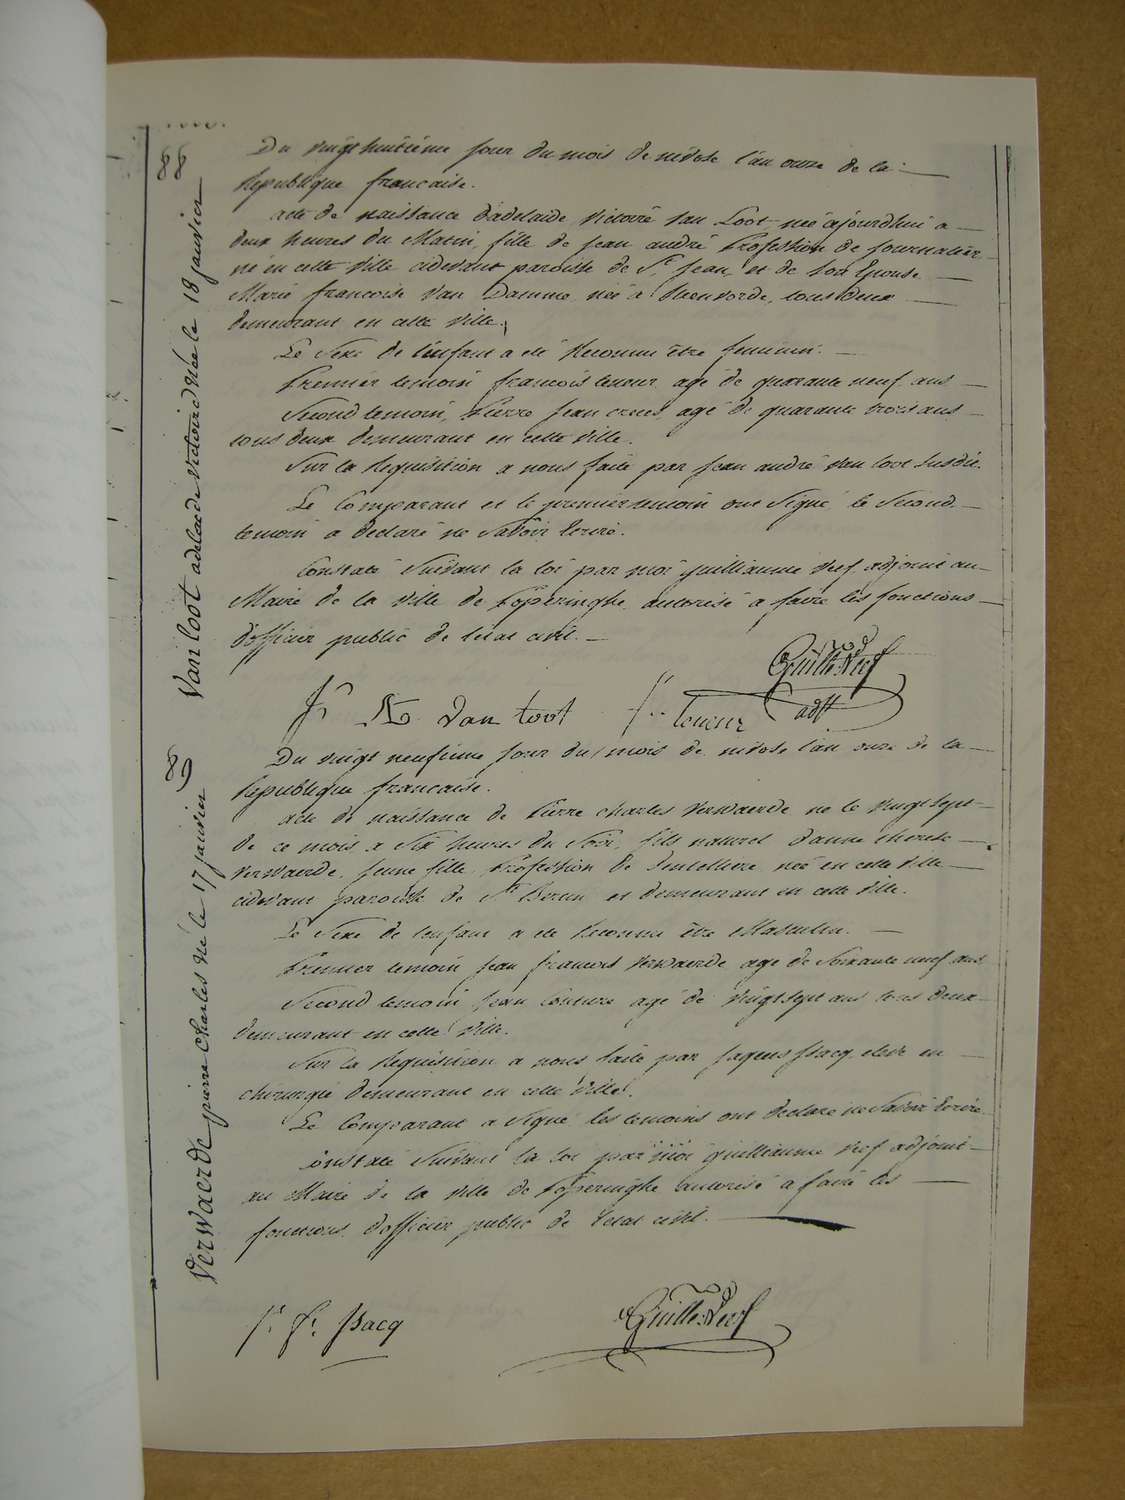 88
Van loot adelaide victoire née le 18 janvier
Du vingthuitième jour du mois de nivose l'an onze de la
Republique française.
acte de naissance d'adelaide victoire van Loot née ajourdhui a
deux heures du Matin, fille de jean andré Profession de journalier
né en cette ville cidevant paroisse de St. jean, et de son Epouse
Marie francoise Van Damme née a , tous deux
demeurant en cette ville.
Le Sexe de l'enfant a eté Reconnu être feminin.
Premier temoin francois teneur agé de quarante neuf ans
Second temoin, Pierre jean agé de quarante trois ans
tous deux demeurant en cette ville.
Sur la Requisition a nous faite par jean andré van loot Susdit.
Le Comparant et le premier temoin ont Signé le Second
temoin a declaré ne Savoir Ecrire.
Constaté Suivant la loi par moi guilliaume Neef adjoint au
Maire de la ville de Poperinghe autorisé a faire les fonctions
d'officier public de l'etat civil.
Guille. Neef
adjt
J A Van Loot fr. teneur
89
Verwaerde pierre charles né le 17 janvier
Du vingt neufieme jour du mois de nivose l'an onze de la
Republique francaise.
acte de naissance de Pierre charles Verwaerde né le vingtsept
de ce mois a Six heures du Soir, fils naturel d'anne therese
Verwaerde, jeune fille, Profession de dentelliere née en cette ville
cidevant paroisse de St. Bertin et demeurant en cette ville.
Le Sexe de l'enfant a eté Reconnu être Masculin.
Premier temoin jean francois Verwaerde agé de Soixante neuf ans
Second temoin jean Couture agé de vingtsept ans tous deux
demeurant en cette ville.
Sur la Requisition a nous faite par Isacq eleve en
chirurgie demeurant en cette ville.
Le Comparant a Signé les temoins ont declaré ne Savoir Ecrire
Constaté Suivant la loi par moi guilliaume Neef adjoint
au Maire de la ville de Poperinghe autorisé a faire les
fonctions d'officier public de l'etat civil.
j. f. Isacq Guille. Neef